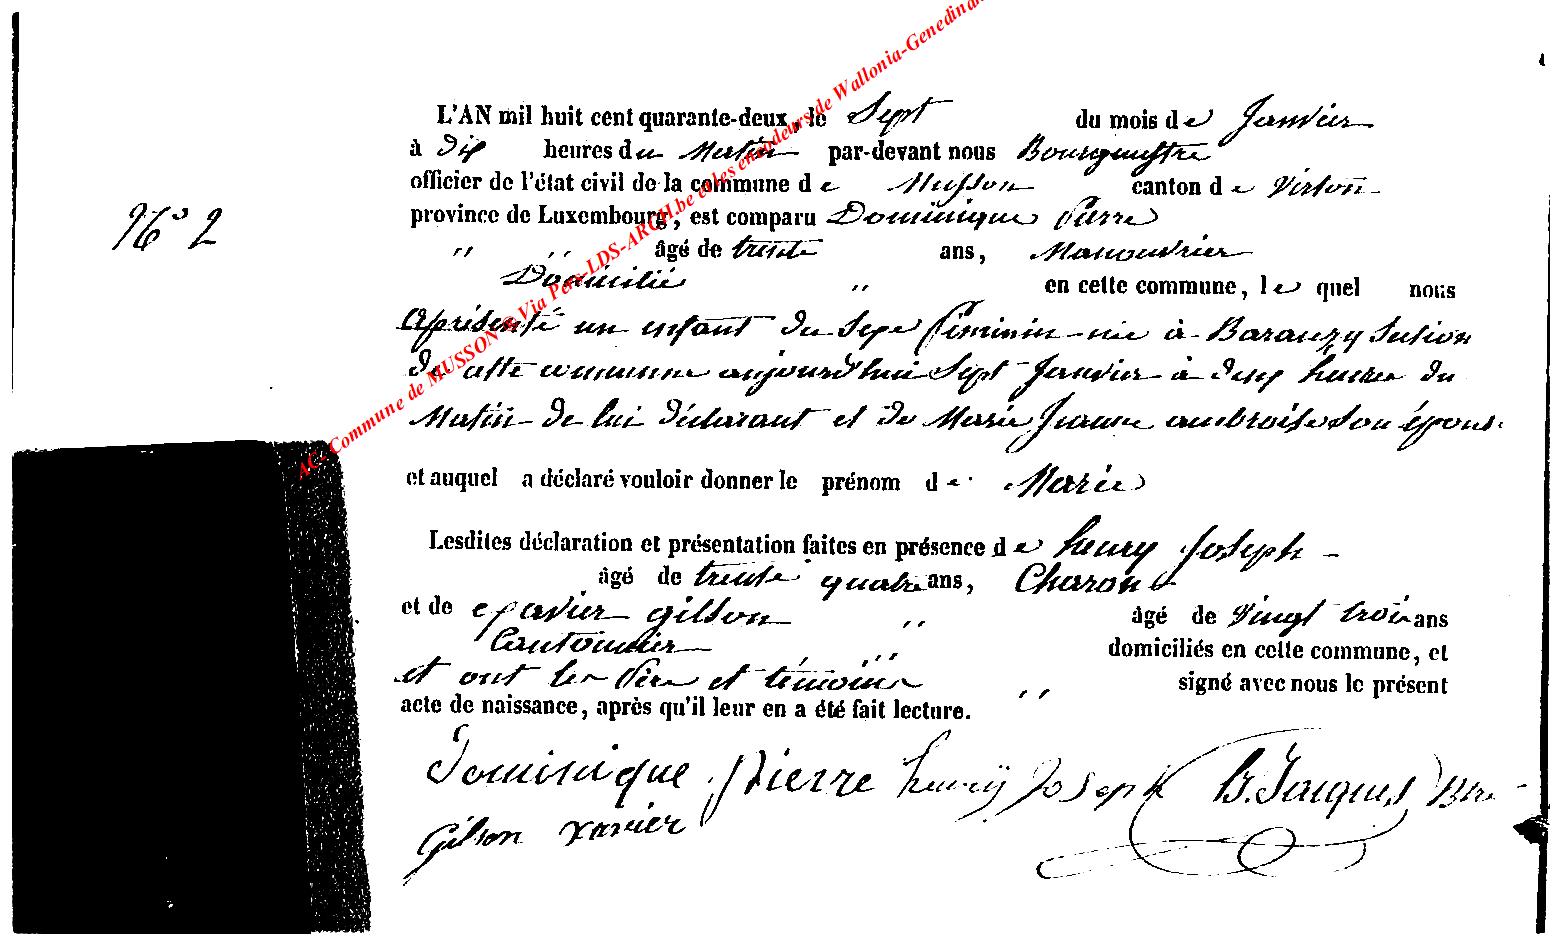 AC- Commune de MUSSON © Via Pers-LDS-ARCH.be et les encodeurs de Wallonia-Genedinan
L'AN mil huit cent quarante-deux, le Sept du mois de Janvier
à dix heures du Matin par-devant nous Bourgmestre
officier de l'état civil de la commune de Musson canton de Virton
N° 2
province de Luxembourg, est comparu Dominique Pierre
" " âgé de trente ans, Manouvrier
Domicilié " en cette commune, le quel nous
a présenté un enfant du Sexe féminin née à Baranzy Section
de cette commune aujourd'hui Sept Janvier à deux heures du
Matin de lui déclarant et de Marie Jeanne ambroise son épouse
et auquel a déclaré vouloir donner le prénom de Marie
Lesdites déclaration et présentation faites en présence de henry Joseph
âgé de trente quatre ans, Charon
et de Xavier gilson " âgé de Vingt trois ans
Cantonnier " domiciliés en cette commune, et
et ont les Père et témoins " signé avec nous le présent
acte de naissance, après qu'il leur en a été fait lecture.
Dominique Pierre henry Joseph Jacques
Gilson xavier